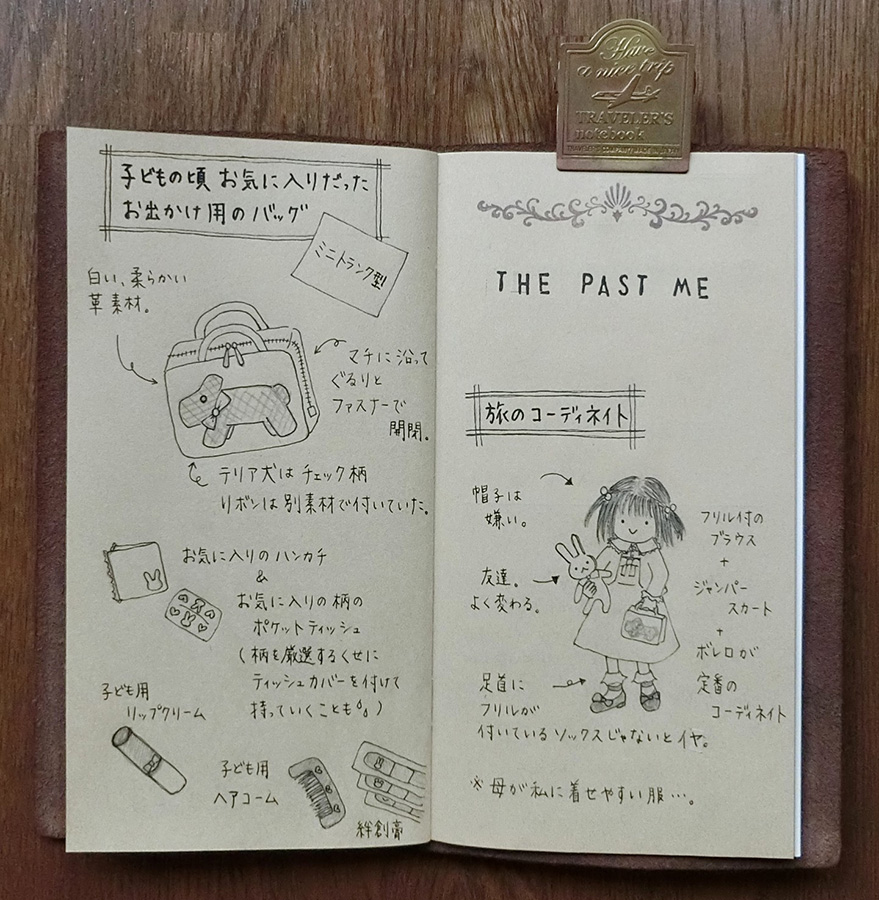 Have
a nice trip
TRAVELER'S
notebook
TRAVELER'S COMPANY MADE IN JAPAN
子どもの頃 お気に入りだった
お出かけ用のバッグ
ミニトランク型
白い、柔らかい
革素材。
マチに沿って
ぐるりと
ファスナーで
開閉。
テリア犬は チェック柄
リボンは別素材で付いていた。
お気に入りの ハンカチ
&
お気に入りの柄の
ポケットティッシュ
(柄を厳選するくせに
ティッシュカバーを付けて
持っていくことも)
子ども用
リップクリーム
子ども用
ヘアコーム
絆創膏
THE PAST ME
旅のコーディネイト
帽子は
嫌い。
友達。
よく変わる。
フリル付の
ブラウス
+
ジャンパー
スカート
+
ボレロが
定番の
コーディネイト
足首に
フリルが
付いているソックスじゃないとイヤ。
※母が私に着せやすい服…。